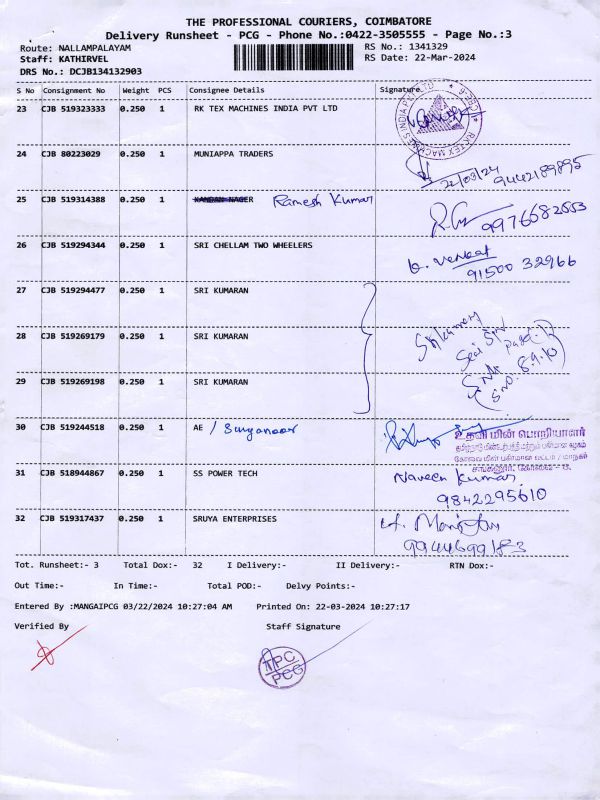 THE PROFESSIONAL COURIERS, COIMBATORE
Delivery Runsheet - PCG - Phone No.:0422-3505555 - Page No.:3
Route: NALLAMPALAYAM RS No.: 1341329
Staff: KATHIRVEL RS Date: 22-Mar-2024
DRS No.: DCJB134132903
S No Consignment No Weight PCS Consignee Details Signature
23 CJB 519323333 0.250 1 RK TEX MACHINES INDIA PVT LTD
24 CJB 80223029 0.250 1 MUNIAPPA TRADERS
22/03/24 9442189895
25 CJB 519314388 0.250 1 KANDAN NAGER Ramesh Kumar
9976682553
26 CJB 519294344 0.250 1 SRI CHELLAM TWO WHEELERS
91500 32966
27 CJB 519294477 0.250 1 SRI KUMARAN
28 CJB 519269179 0.250 1 SRI KUMARAN
29 CJB 519269198 0.250 1 SRI KUMARAN
30 CJB 519244518 0.250 1 AE
உதவி மின் பொறியாளர்
31 CJB 518944867 0.250 1 SS POWER TECH Naveen Kumar
9842295610
32 CJB 519317437 0.250 1 SRUYA ENTERPRISES
9944699183
Tot. Runsheet:- 3 Total Dox:- 32 I Delivery:- II Delivery:- RTN Dox:-
Out Time:- In Time:- Total POD:- Delvy Points:-
Entered By :MANGAIPCG 03/22/2024 10:27:04 AM Printed On: 22-03-2024 10:27:17
Verified By Staff Signature
TPC
PCG